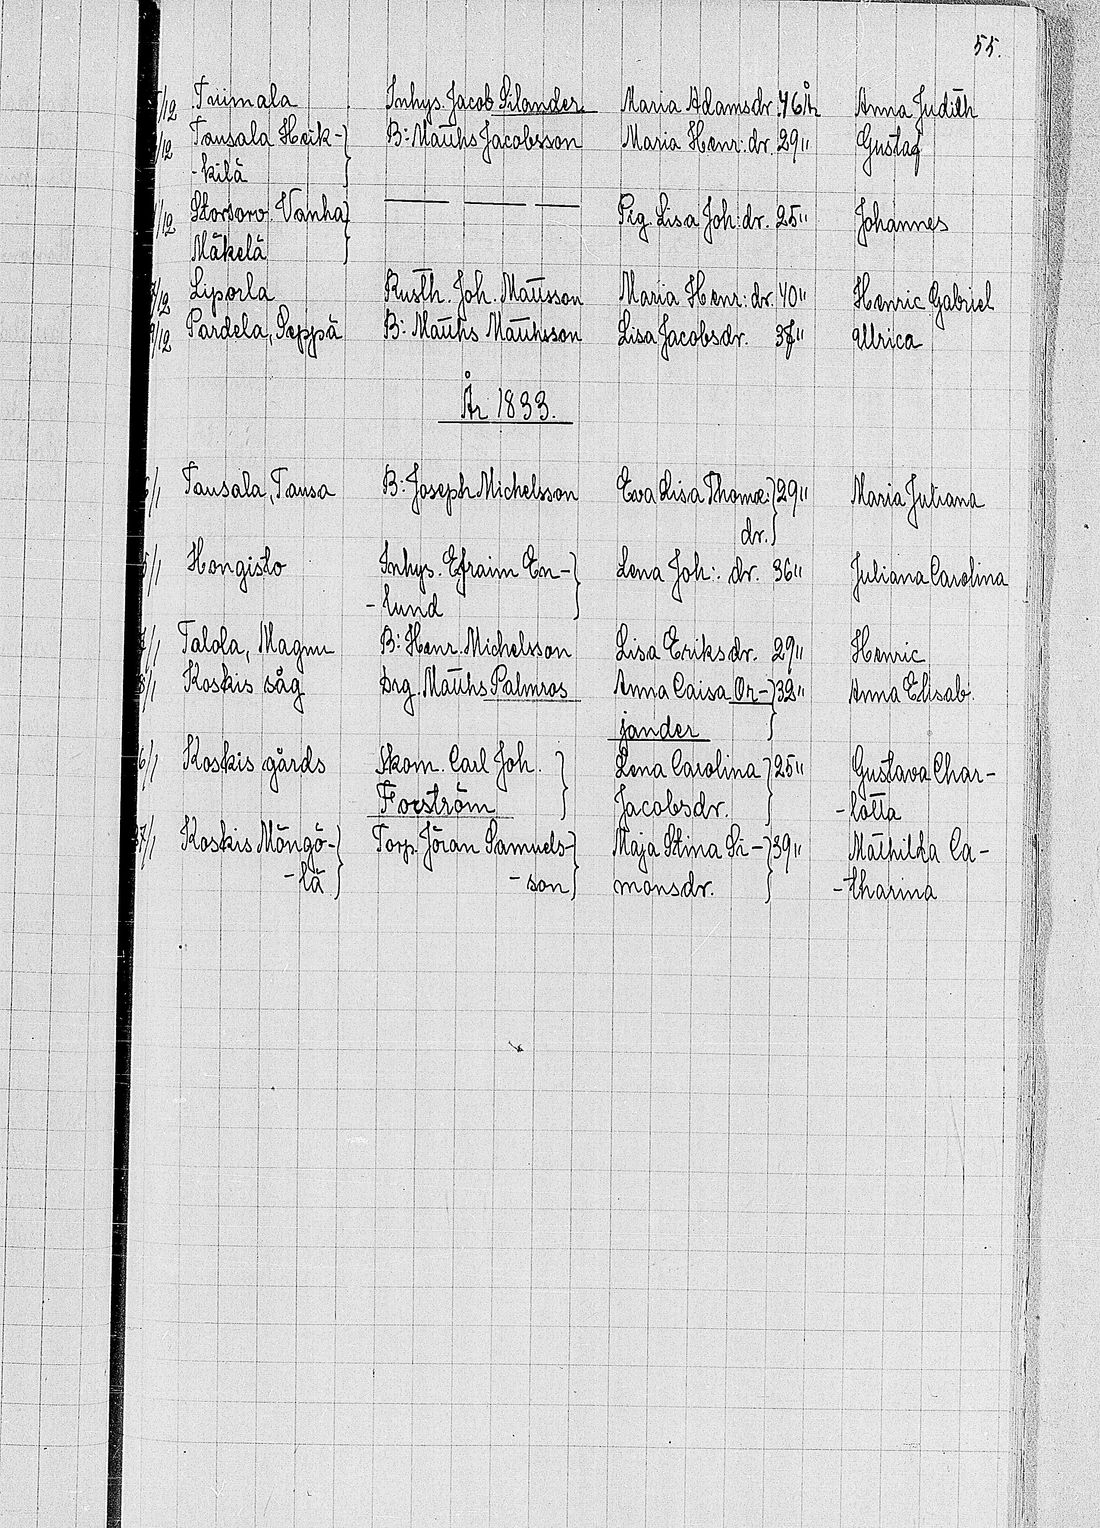 55.
/12 Tuimala Inhys. Jacob Silander Maria Adamsdr. 46 År Anna Judith
/12 Tausala Heik- B: Matths Jacobsson Maria Henr: dr. 29 " Gustaf
-kilä
/12 Storsoro. Vanha — — — Pig. Lisa Joh: dr. 25 " Johannes
Mäkelä
/12 Liporla Rusth. Joh. Mattsson Maria Henr: dr. 40 " Henric Gabriel
/12 Pardela, Seppä B: Matths Matthsson Lisa Jacobsdr. 37 " Ulrica
År 1833.
/1 Tausala, Tausa B: Joseph Michelsson Eva Lisa Thomæ: 29 " Maria Juliana
dr.
5/1 Hongisto Inhys. Efraim En- Lena Joh:. dr. 36 " Juliana Carolina
-lund
/1 Talola, Magnu B: Henr. Michelsson Lisa Eriksdr. 29 " Henric
8/1 Koskis såg Drg. Matths Palmros Anna Caisa Or- 32 " Anna Elisab.
jander
6/1 Koskis gårds Skom. Carl Joh. Lena Carolina 25 " Gustava Char-
Forström Jacobsdr. -lotta
27/1 Koskis Möngö- Torp. Jöran Samuels- Maja Stina Si- 39 " Mathilda Ca-
-lä -son monsdr. -tharina